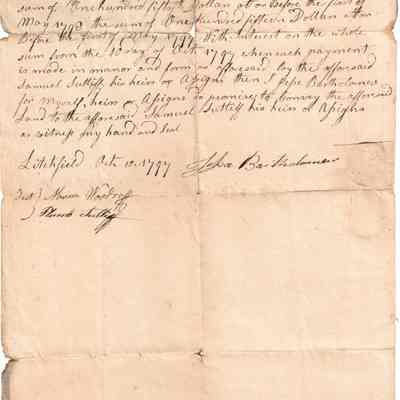 sum of One hundred fifty Dollars at or Before the first of
May 1798 the sum of One hundred fifteen Dollars at or
Before the first of May 1799 With Interest on the whole
sum from the 10 day of Octr 1797 when such payment
is made in manor and form as afforesaid by the afforesaid
Samuel Sutliff his heirs & Asigns then I
for myself heirs & Asigns do promise to Convay the afforesaid
Land to the afforesaid Samuel Sutliff his heirs & Asigns
as witness my hand and Seal
Litchfield Octr 10 1797 Bartholomew
Test Woodruff
Sutliff